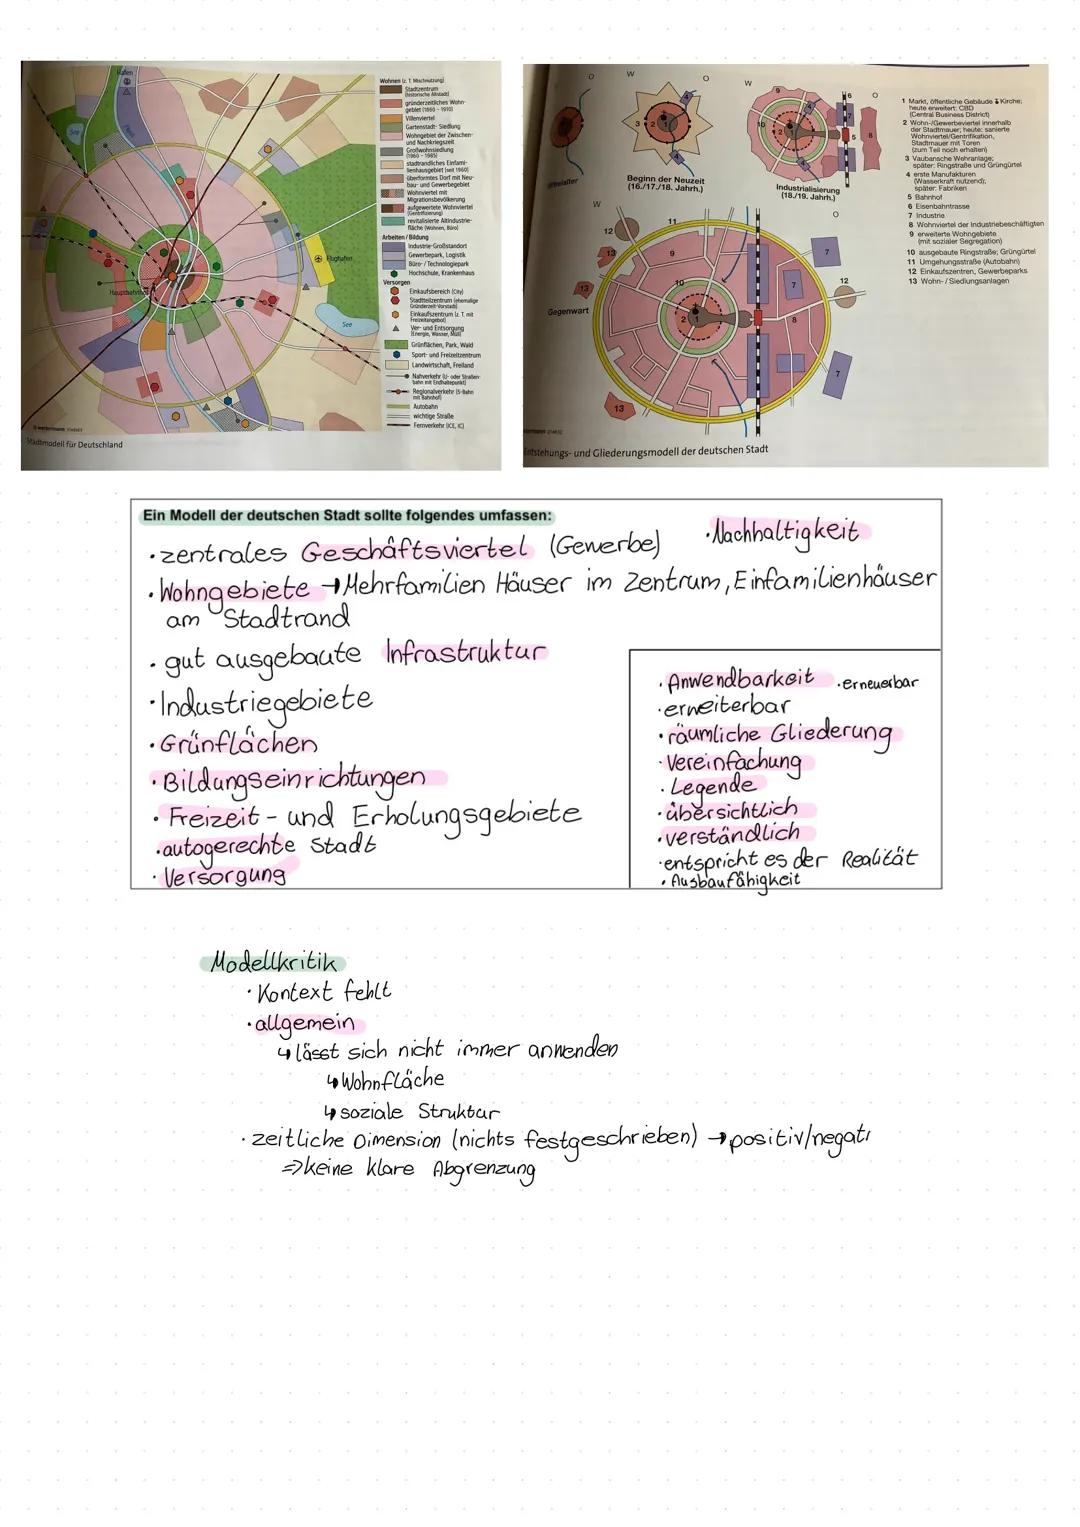 Hafen
See
Fluss
Flughafen
Hauptbahnhof
See
Stadtmodell für Deutschland
Wohnen (z. T. Mischnutzung)
Stadtzentrum
(historische Altstadt)
gründerzeitliches Wohn-
gebiet (1860 - 1910)
Villenviertel
Gartenstadt-Siedlung
Wohngebiet der Zwischen-
und Nachkriegszeit
Großwohnsiedlung
(1960 - 1985)
stadtrandliches Einfami-
lienhausgebiet (seit 1960)
überformtes Dorf mit Neu-
bau- und Gewerbegebiet
Wohnviertel mit
Migrationsbevölkerung
aufgewertete Wohnviertel
(Gentrifizierung)
revitalisierte Altindustrie-
fläche (Wohnen, Büro)
Arbeiten / Bildung
Industrie-Großstandort
Gewerbepark, Logistik
Büro- / Technologiepark
Hochschule, Krankenhaus
Versorgen
Einkaufsbereich (City)
Stadtteilzentrum (ehemalige
Gründerzeit-Vorstadt)
Einkaufszentrum (z. T. mit
Freizeitangebot)
Ver- und Entsorgung
(Energie, Wasser, Müll)
Grünflächen, Park, Wald
Sport- und Freizeitzentrum
Landwirtschaft, Freiland
Nahverkehr (U- oder Straßen-
bahn mit Endhaltepunkt)
Regionalverkehr (S-Bahn
mit Bahnhof)
Autobahn
wichtige Straße
Fernverkehr (ICE, IC)
O W O W O
Beginn der Neuzeit
(16./17./18. Jahrh.)
Industrialisierung
(18./19. Jahrh.)
W O
Gegenwart
3 2 1 4 4
9 10 2 1 4 6 7 5 8
12 11 13 9 7 10 12 7 13 2 1 8 7 13
Entstehungs- und Gliederungsmodell der deutschen Stadt
1 Markt, öffentliche Gebäude Kirche;
heute erweitert: CBD
(Central Business District)
2 Wohn-/Gewerbeviertel innerhalb
der Stadtmauer; heute: sanierte
Wohnviertel/Gentrifikation,
Stadtmauer mit Toren
(zum Teil noch erhalten)
3 Vaubansche Wehranlage;
später: Ringstraße und Grüngürtel
4 erste Manufakturen
(Wasserkraft nutzend);
später: Fabriken
5 Bahnhof
6 Eisenbahntrasse
7 Industrie
8 Wohnviertel der Industriebeschäftigten
9 erweiterte Wohngebiete
(mit sozialer Segregation)
10 ausgebaute Ringstraße; Grüngürtel
11 Umgehungsstraße (Autobahn)
12 Einkaufszentren, Gewerbeparks
13 Wohn- / Siedlungsanlagen
Ein Modell der deutschen Stadt sollte folgendes umfassen:
· zentrales Geschäftsviertel (Gewerbe)
· Nachhaltigkeit
· Wohngebiete → Mehrfamilien Häuser im Zentrum, Einfamilienhäuser
am Stadtrand
· gut ausgebaute Infrastruktur
· Industriegebiete
· Grünflächen
· Bildungseinrichtungen
· Freizeit- und Erholungsgebiete
· autogerechte Stadt
· Versorgung
· Anwendbarkeit · erneuerbar
· erweiterbar
· räumliche Gliederung
· Vereinfachung
· Legende
· übersichtlich
· verständlich
· entspricht es der Realität
· Ausbaufähigkeit
Modellkritik
· Kontext fehlt
· allgemein
↳ lässt sich nicht immer anwenden
↳ Wohnfläche
↳ soziale Struktur
· zeitliche Dimension (nichts festgeschrieben) → positiv/negati
⇒ keine klare Abgrenzung